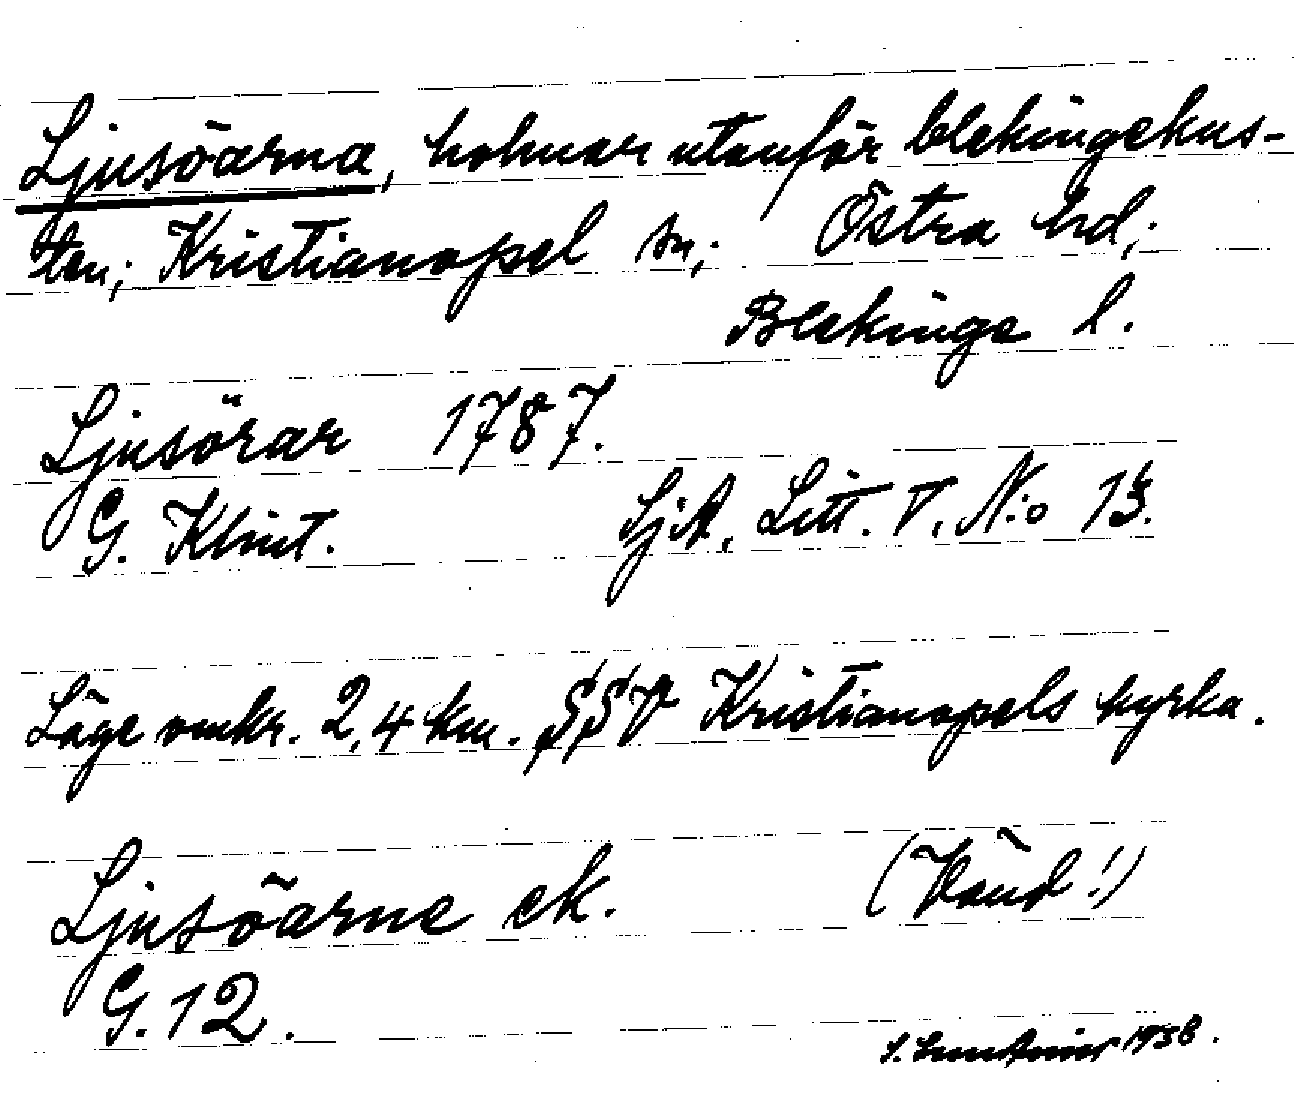 Ljusöarna, holmar utanför blekingekus-
ten; Kristianopel sn; Östra hd;
Blekinge l.
Ljusörar 1787.
G. Klint. SjA, Litt. V. N:o 13.
Läge omkr. 2,4 km. SSV Kristianopels kyrka.
Ljusöarne ek. (Vänd!)
G. 12.
1938.